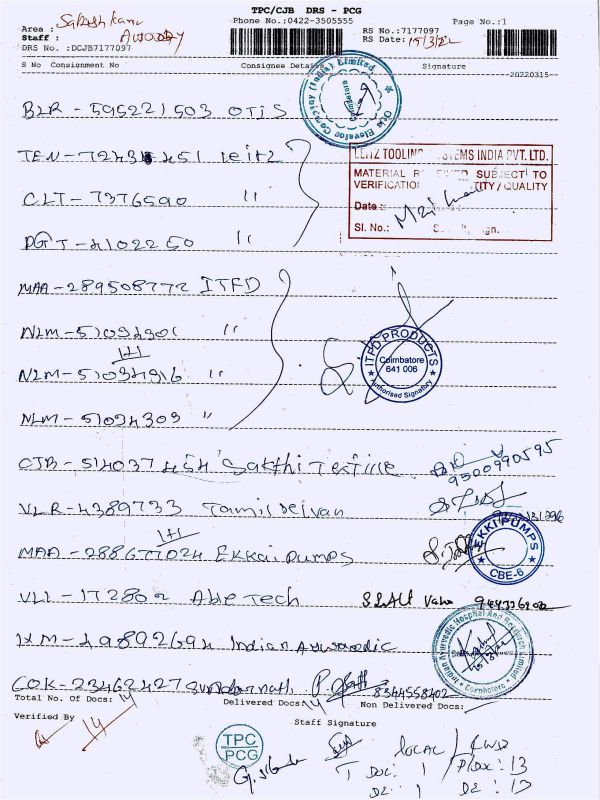 TPC/CJB DRS - PCG
Phone No.:0422-3505555 Page No.:1
Area :
Staff :
RS No.:7177097
RS Date: 15/3/22
DRS No. :DCJB7177097
S No Consignment No Consignee Details Signature
20220315
BLR - 595221503 OTIS
Otis Elevator Company (India) Limited
Coimbatore
TEN - 451 Leitz
CLT - 7376590 "
PGT - 4102250 "
LEITZ TOOLING SYSTEMS INDIA PVT. LTD.
MATERIAL SUBJECT TO
VERIFICATION QUALITY
Date :
Sl. No.: Sign.
MAA - 289508772 ITFD
NLM - "
1+1
NLM - "
NLM - 51034303 "
ITFD PRODUCTS
Coimbatore
641 006
Authorised Signatory
CJB - 514037454 Sakthi Textile
9500990595
VLR - 4389733 Tamil Selvan
1+1
MAA - 288677024 Ekkai Pumps
EKKI PUMPS
CBE-6
VLI - Able Tech
Indian Ayurvedic
Indian Ayurvedic Hospital And Research Limited
Coimbatore
15/3/22
COK - 23462427 Sundarnath 8344558402
Total No. Of Docs: 14 Delivered Docs: 14 Non Delivered Docs:
Verified By 14 Staff Signature
TPC
PCG
LOCAL
DOC: 1 13
DE: 1 DE: 13